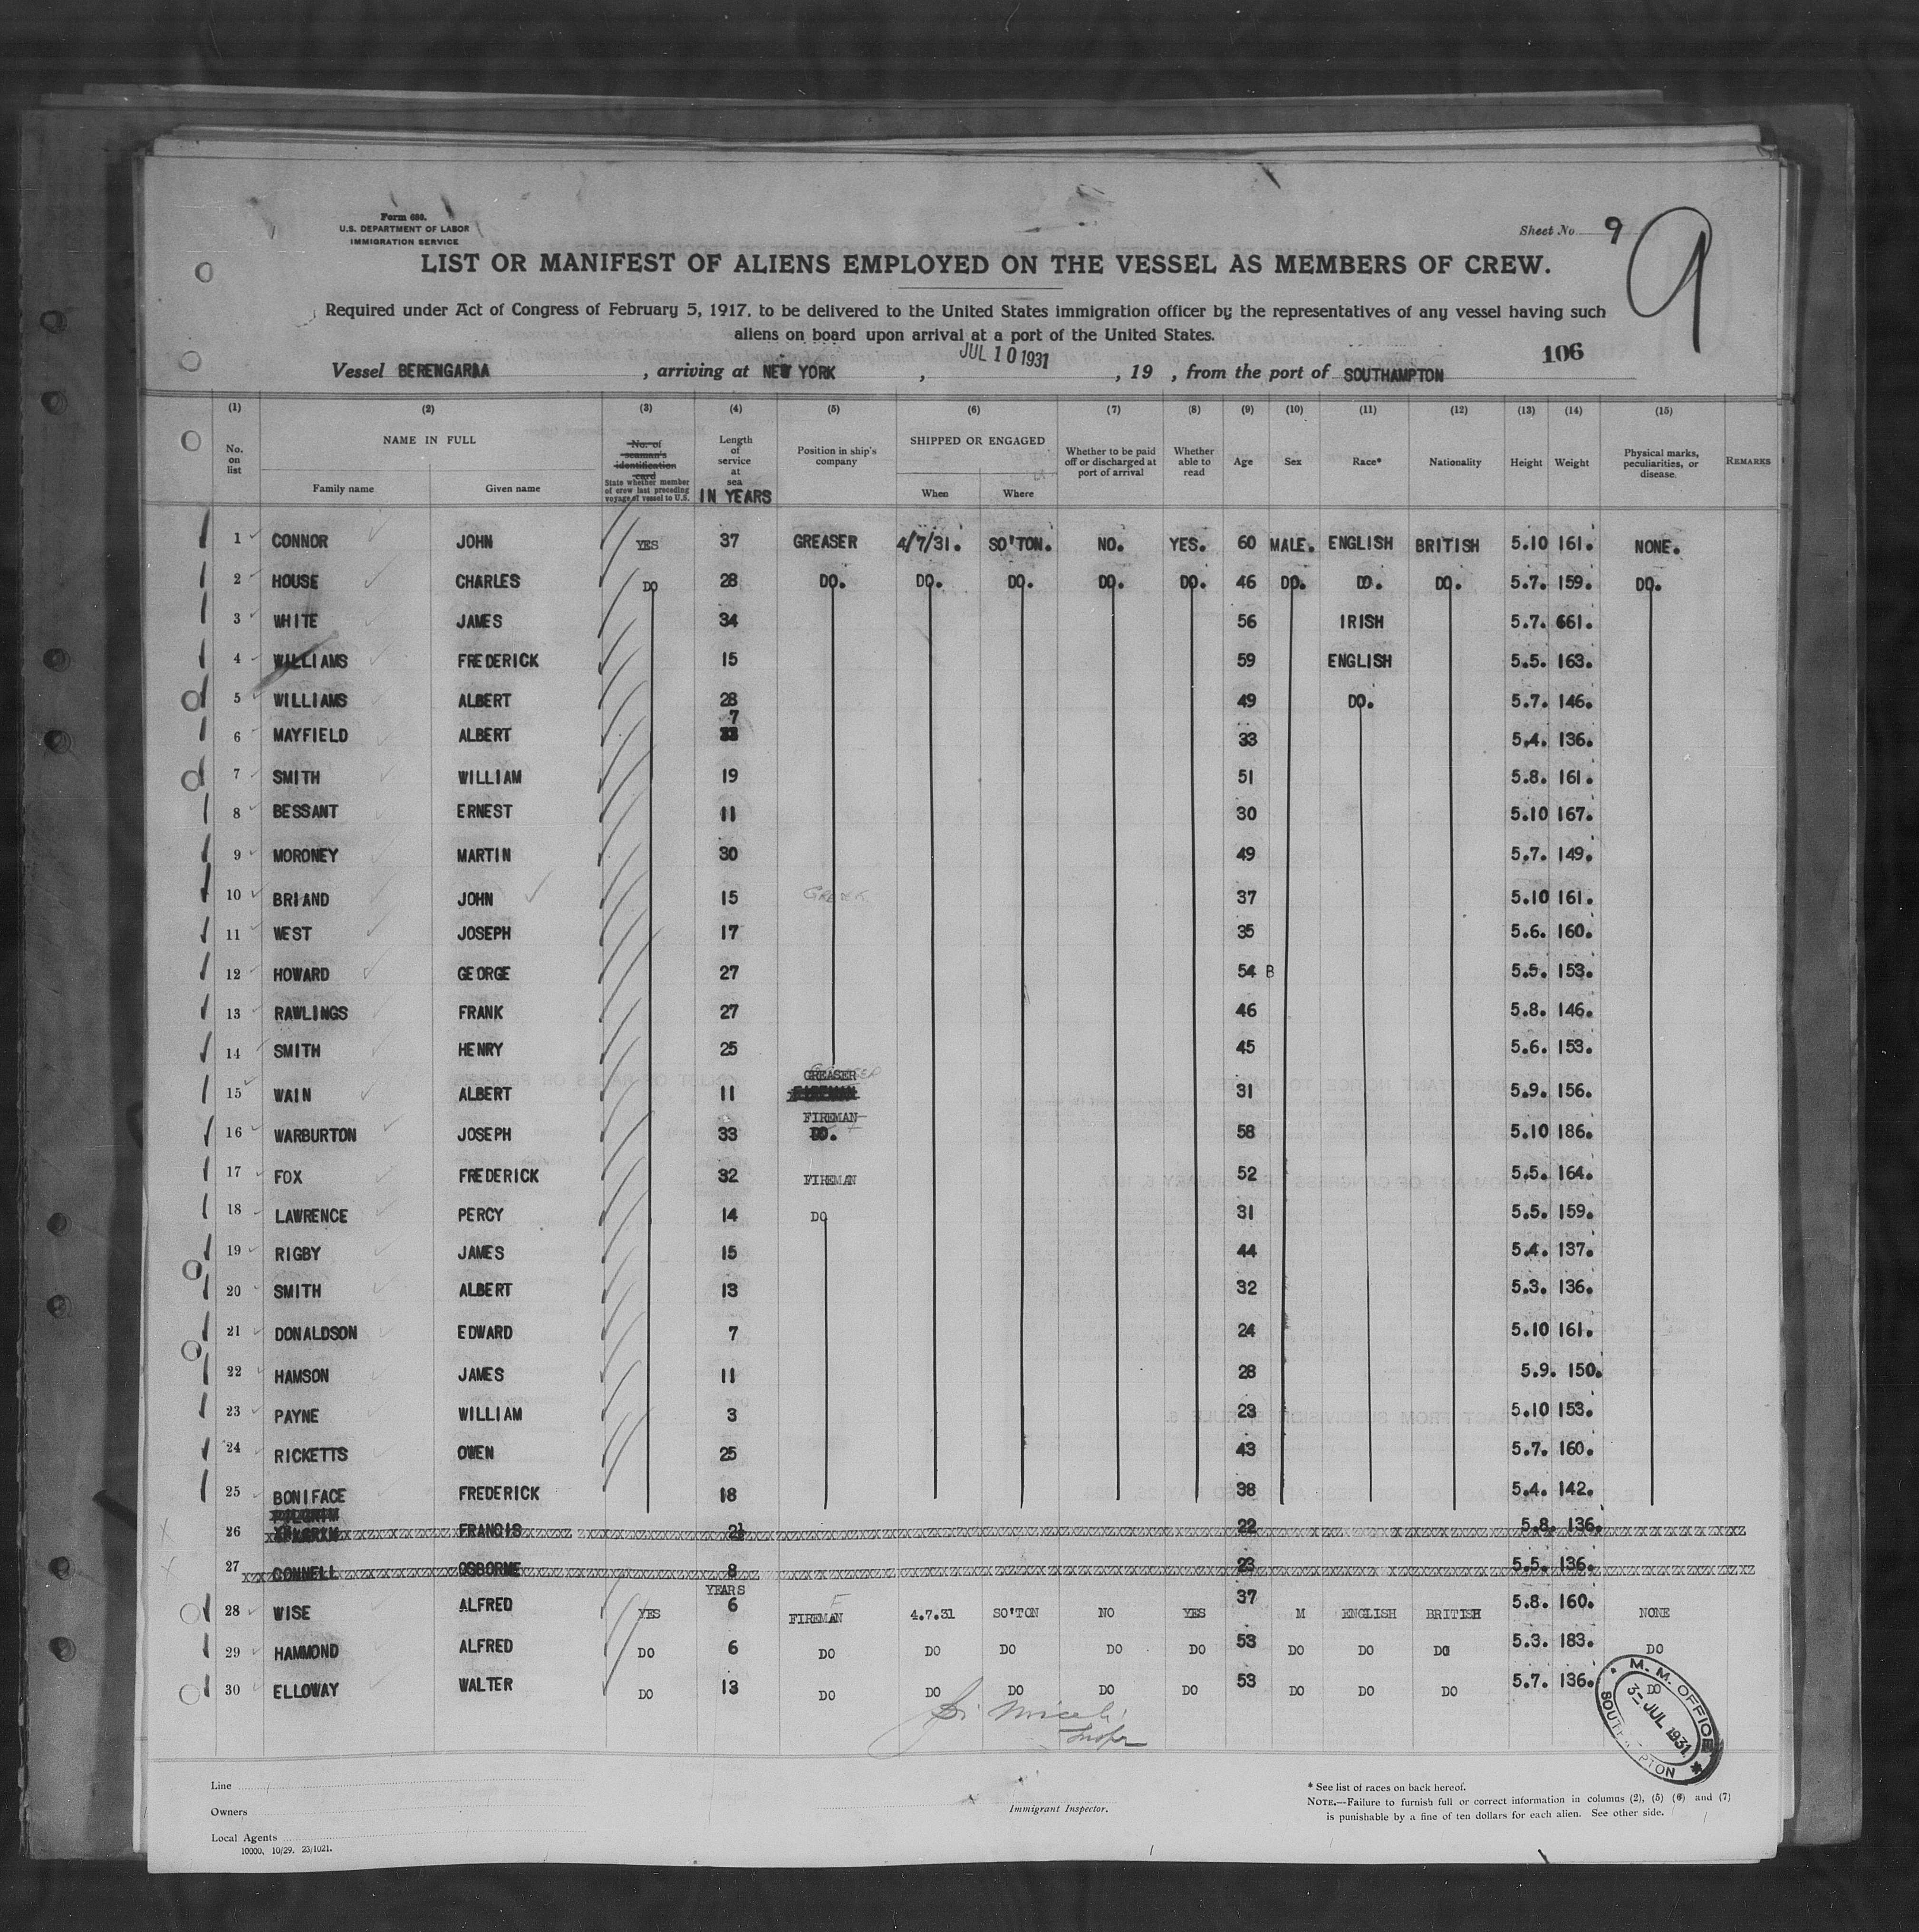 Form 680.
U.S. DEPARTMENT OF LABOR
IMMIGRATION SERVICE
Sheet No 9
9
LIST OR MANIFEST OF ALIENS EMPLOYED ON THE VESSEL AS MEMBERS OF CREW.
Required under Act of Congress of February 5, 1917, to be delivered to the United States immigration officer by the representatives of any vessel having such
aliens on board upon arrival at a port of the United States.
JUL 10 1931
106
Vessel BERENGARIA , arriving at NEW YORK , , 19 , from the port of SOUTHAMPTON
(1) (2) (3) (4) (5) (6) (7) (8) (9) (10) (11) (12) (13) (14) (15)
No. on list NAME IN FULL Family name Given name No. of seaman's identification card State whether member of crew last preceding voyage of vessel to U.S. Length of service at sea IN YEARS Position in ship's company SHIPPED OR ENGAGED When Where Whether to be paid off or discharged at port of arrival Whether able to read Age Sex Race* Nationality Height Weight Physical marks, peculiarities, or disease. REMARKS
1 CONNOR JOHN YES 37 GREASER 4/7/31. SO'TON. NO. YES. 60 MALE. ENGLISH BRITISH 5.10 161. NONE.
2 HOUSE CHARLES DO 28 DO. DO. DO. DO. DO. 46 DO. DO. DO. 5.7. 159. DO.
3 WHITE JAMES 34 56 IRISH 5.7. 661.
4 WILLIAMS FREDERICK 15 59 ENGLISH 5.5. 163.
5 WILLIAMS ALBERT 28 49 DO. 5.7. 146.
7
6 MAYFIELD ALBERT 33 33 5.4. 136.
7 SMITH WILLIAM 19 51 5.8. 161.
8 BESSANT ERNEST 11 30 5.10 167.
9 MORONEY MARTIN 30 49 5.7. 149.
10 BRIAND JOHN 15 37 5.10 161.
11 WEST JOSEPH 17 35 5.6. 160.
12 HOWARD GEORGE 27 54 B 5.5. 153.
13 RAWLINGS FRANK 27 46 5.8. 146.
14 SMITH HENRY 25 45 5.6. 153.
GREASER
15 WAIN ALBERT 11 FIREMAN 31 5.9. 156.
FIREMAN
16 WARBURTON JOSEPH 33 DO. 58 5.10 186.
17 FOX FREDERICK 32 FIREMAN 52 5.5. 164.
18 LAWRENCE PERCY 14 DO 31 5.5. 159.
19 RIGBY JAMES 15 44 5.4. 137.
20 SMITH ALBERT 13 32 5.3. 136.
21 DONALDSON EDWARD 7 24 5.10 161.
22 HAMSON JAMES 11 28 5.9. 150.
23 PAYNE WILLIAM 3 23 5.10 153.
24 RICKETTS OWEN 25 43 5.7. 160.
25 BONIFACE FREDERICK 18 38 5.4. 142.
PILGRIM
26 PILGRIM FRANCIS 2½ 22 5.8. 136.
27 CONNELL OSBORNE 8 23 5.5. 136.
YEARS
28 WISE ALFRED YES 6 FIREMAN 4.7.31 SO'TON NO YES 37 M ENGLISH BRITISH 5.8. 160. NONE
29 HAMMOND ALFRED DO 6 DO DO DO DO DO 53 DO DO DO 5.3. 183. DO
30 ELLOWAY WALTER DO 13 DO DO DO DO DO 53 DO DO DO 5.7. 136. DO
M. M. OFFICE
3- JUL 1931
SOUTHAMPTON
Line
Owners
Local Agents
10000, 10/29. 23/1021.
Immigrant Inspector.
* See list of races on back hereof.
NOTE.—Failure to furnish full or correct information in columns (2), (5) (6) and (7)
is punishable by a fine of ten dollars for each alien. See other side.